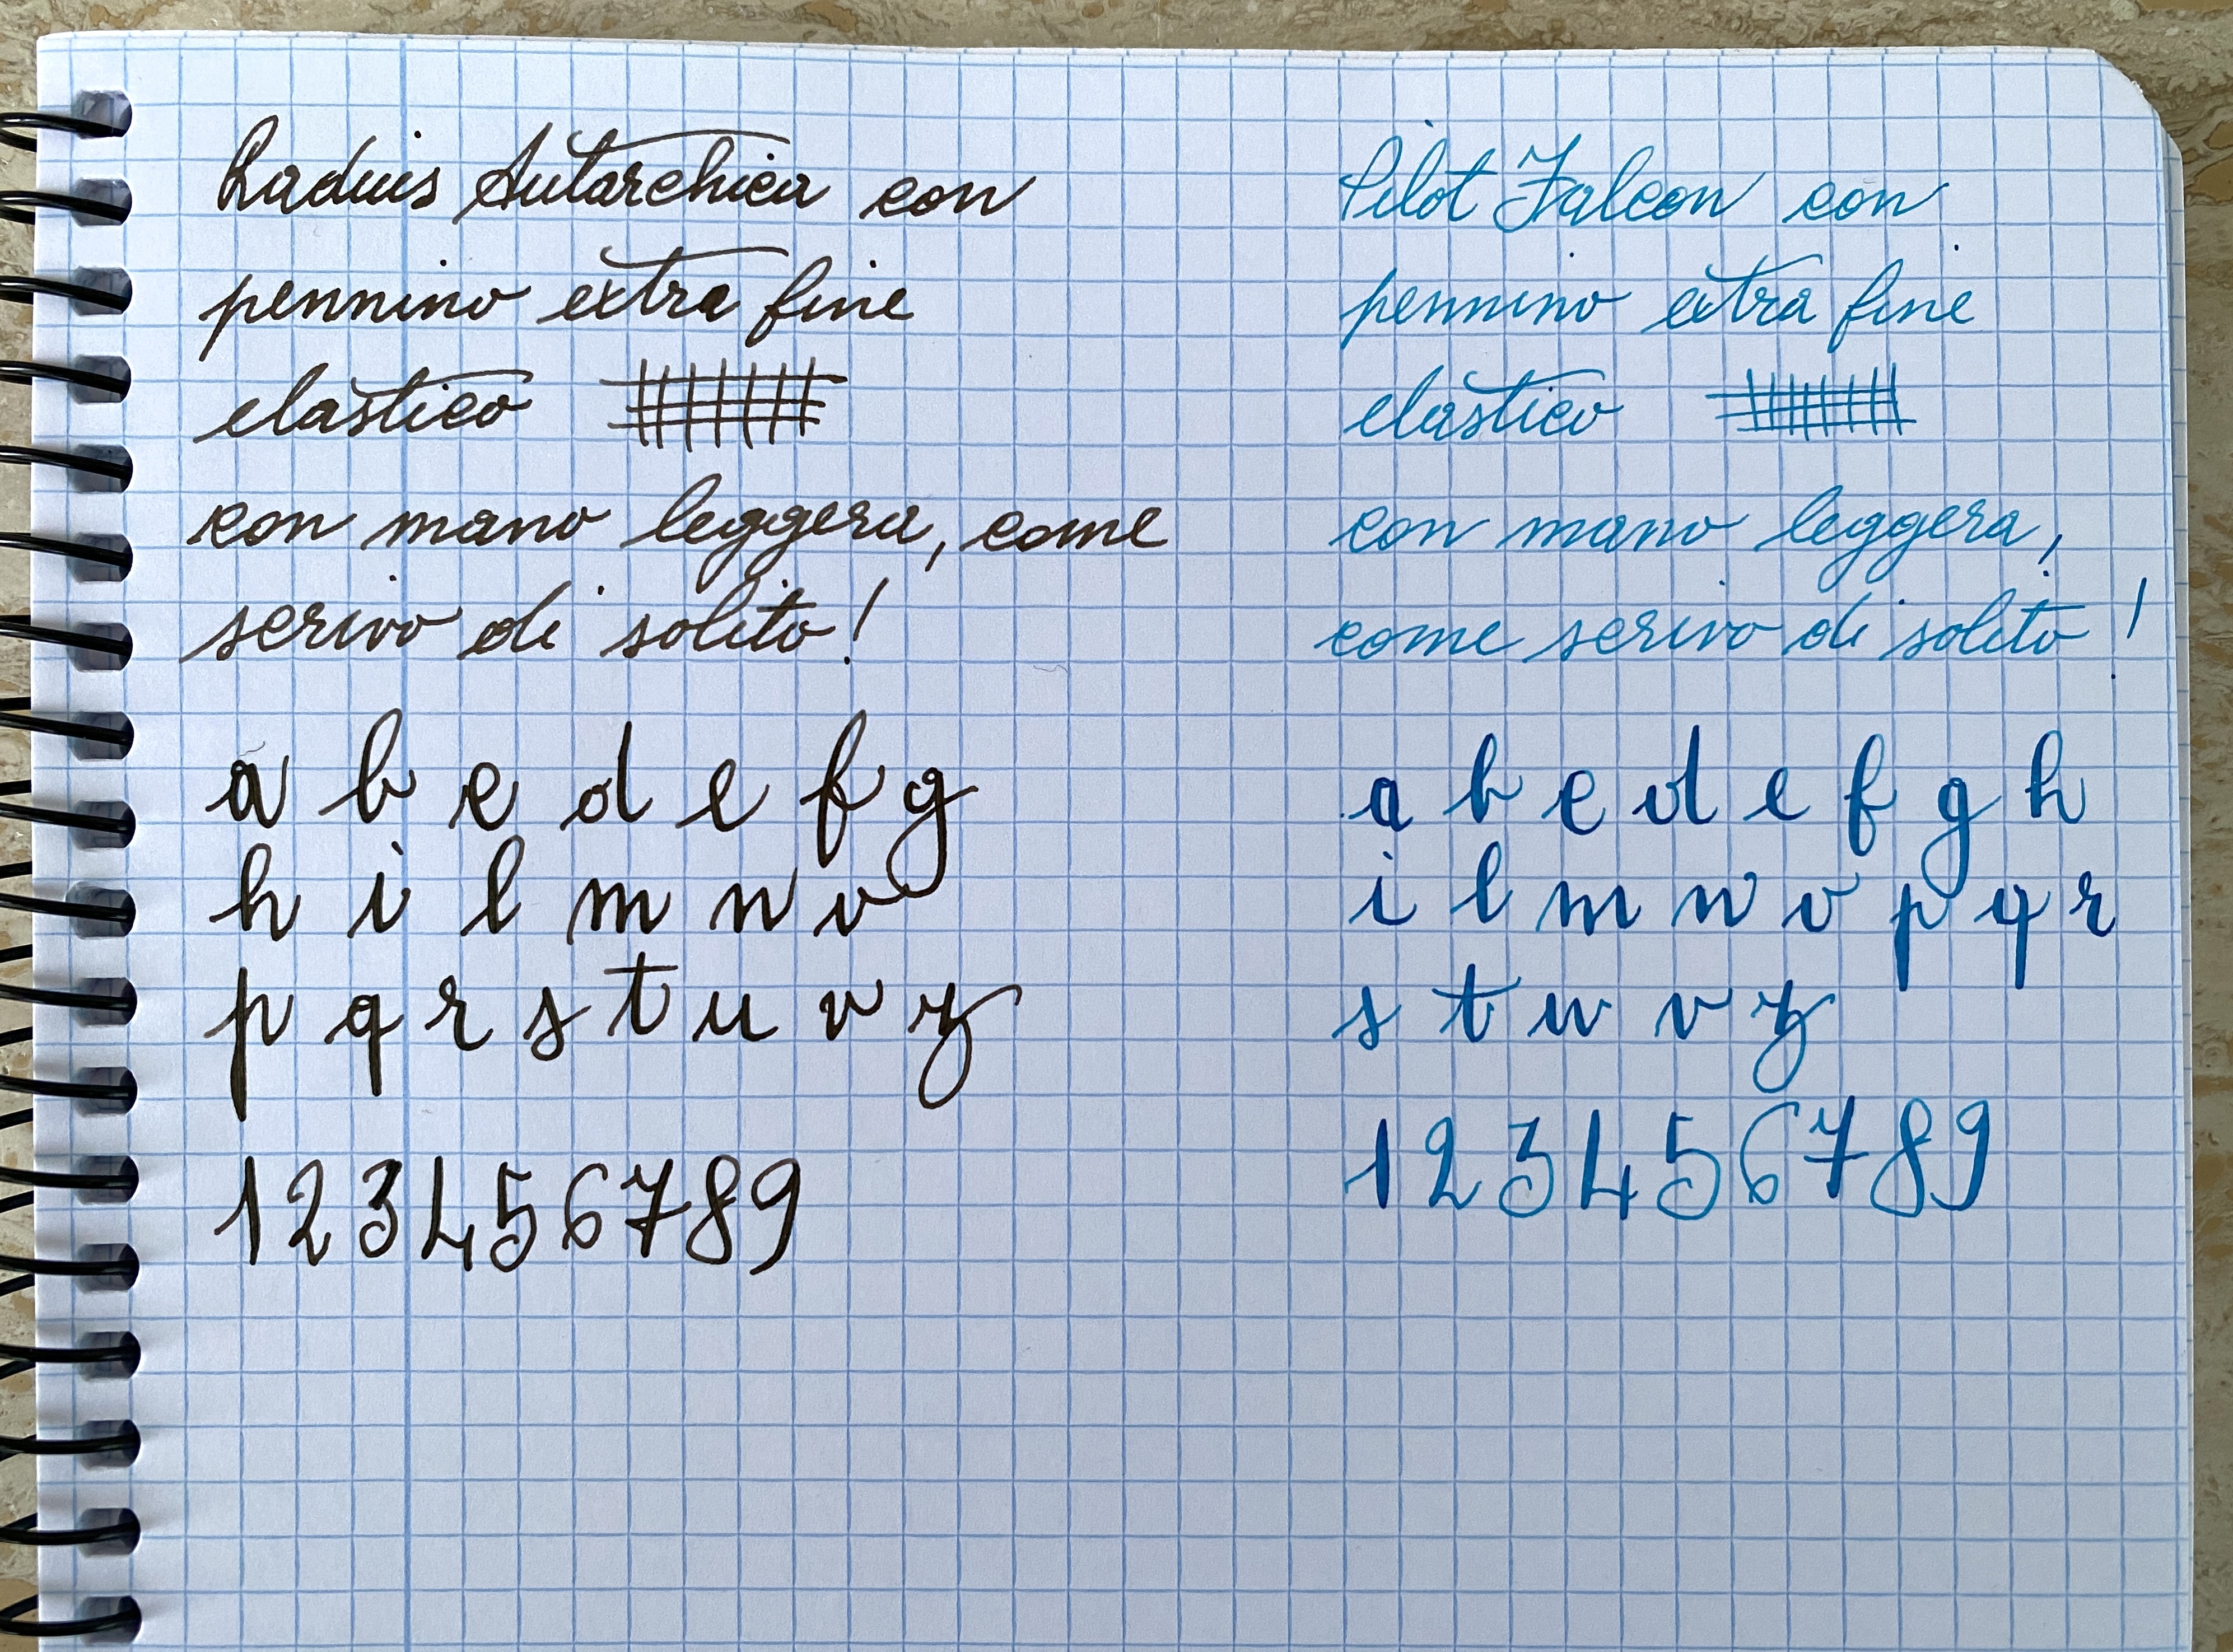 Radius Autarchica con
pennino extra fine
elastico
con mano leggera, come
scrivo di solito!
a b c d e f g
h i l m n o
p q r s t u v z
1 2 3 4 5 6 7 8 9
Pilot Falcon con
pennino extra fine
elastico
con mano leggera,
come scrivo di solito!
a b c d e f g h
i l m n o p q r
s t u v z
1 2 3 4 5 6 7 8 9